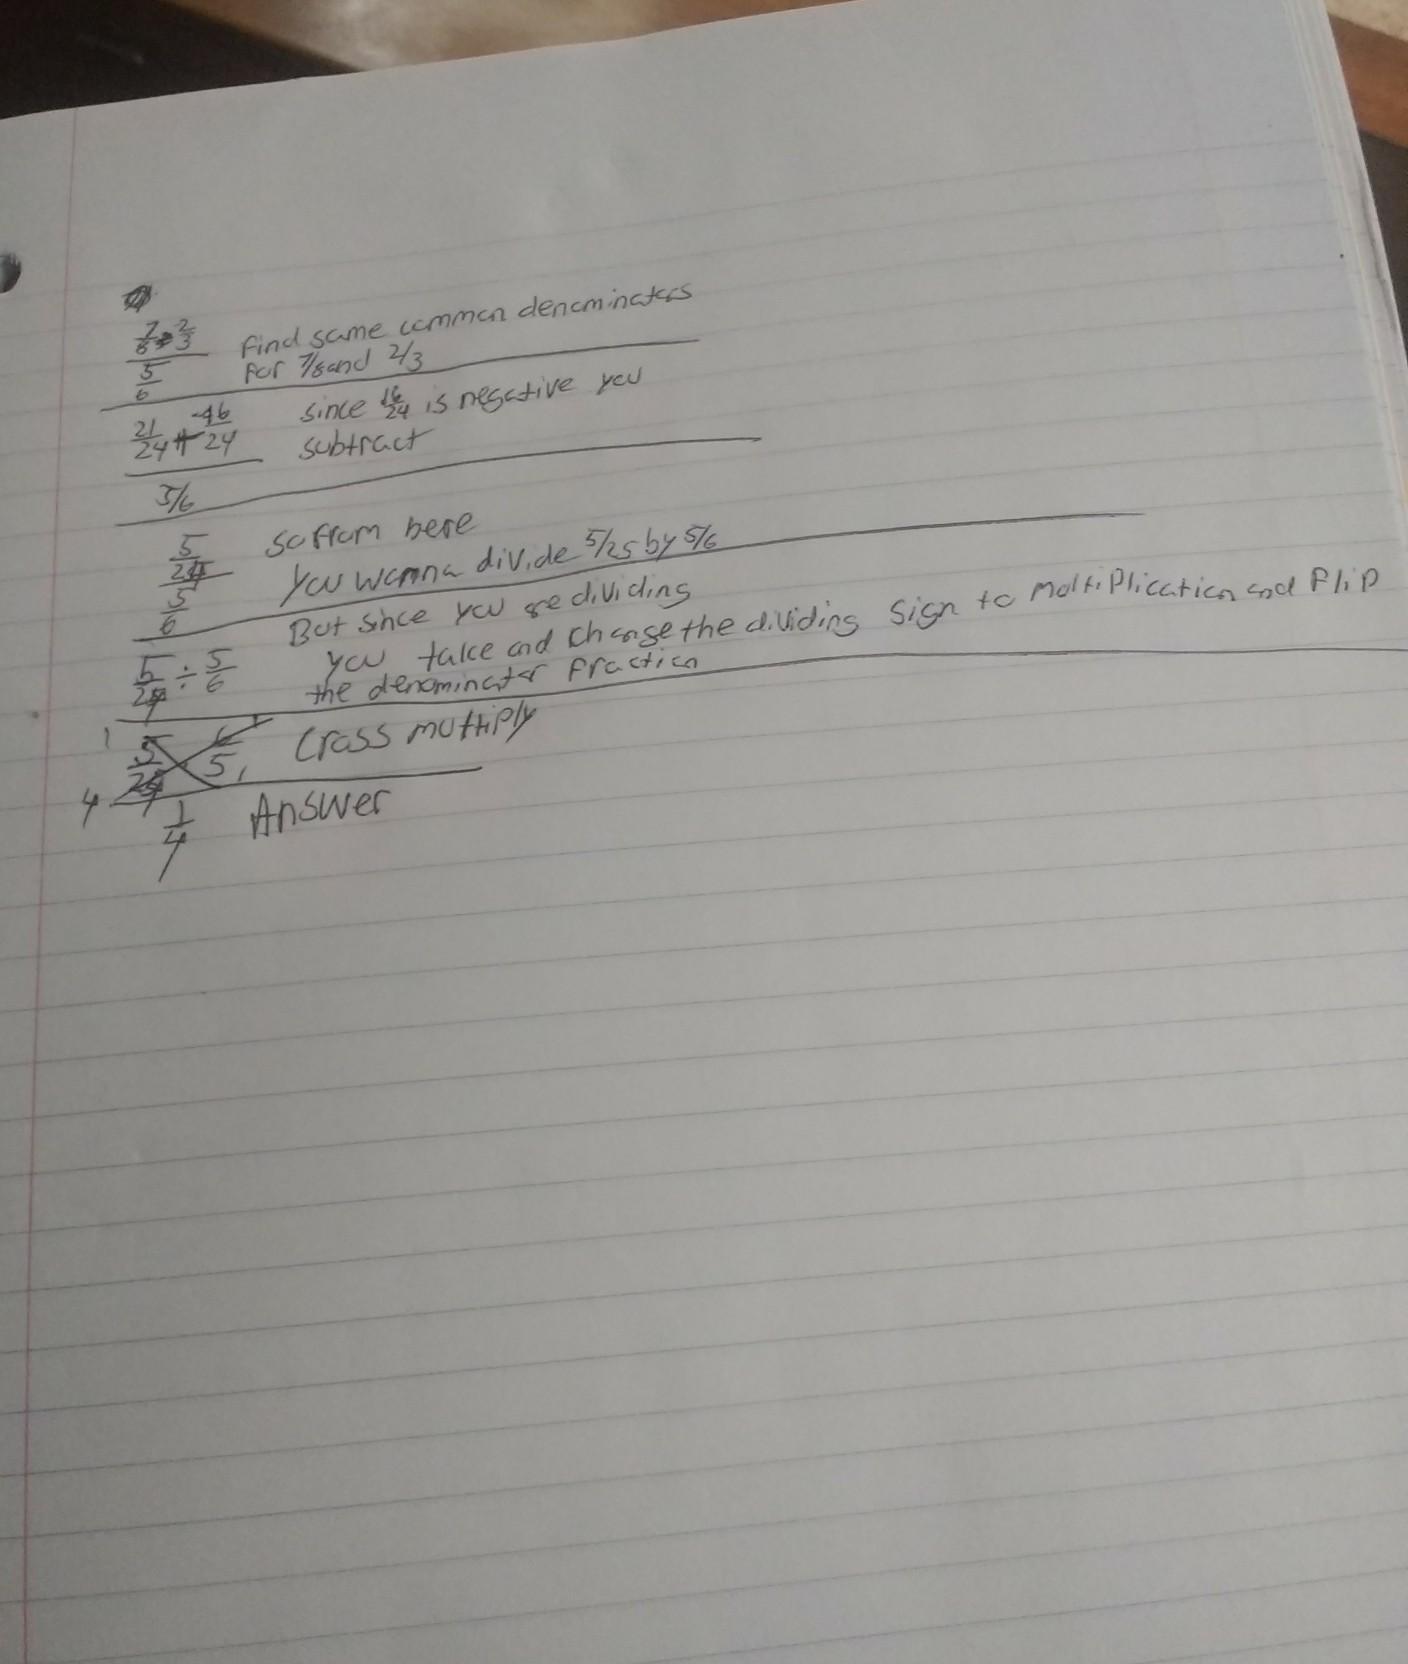 7/8 - 2/3 Find same common denominators
5/6 For 7/8 and 2/3
21/24 + -16/24 since 16/24 is negative you
subtract
5/6
5/24 so from here
5/6 you wanna divide 5/25 by 5/6
But since you are dividing
5/24 ÷ 5/6 you take and change the dividing sign to multiplication and flip
the denominator fraction
1 5/24 6/5 1 Cross multiply
4
1/4 Answer